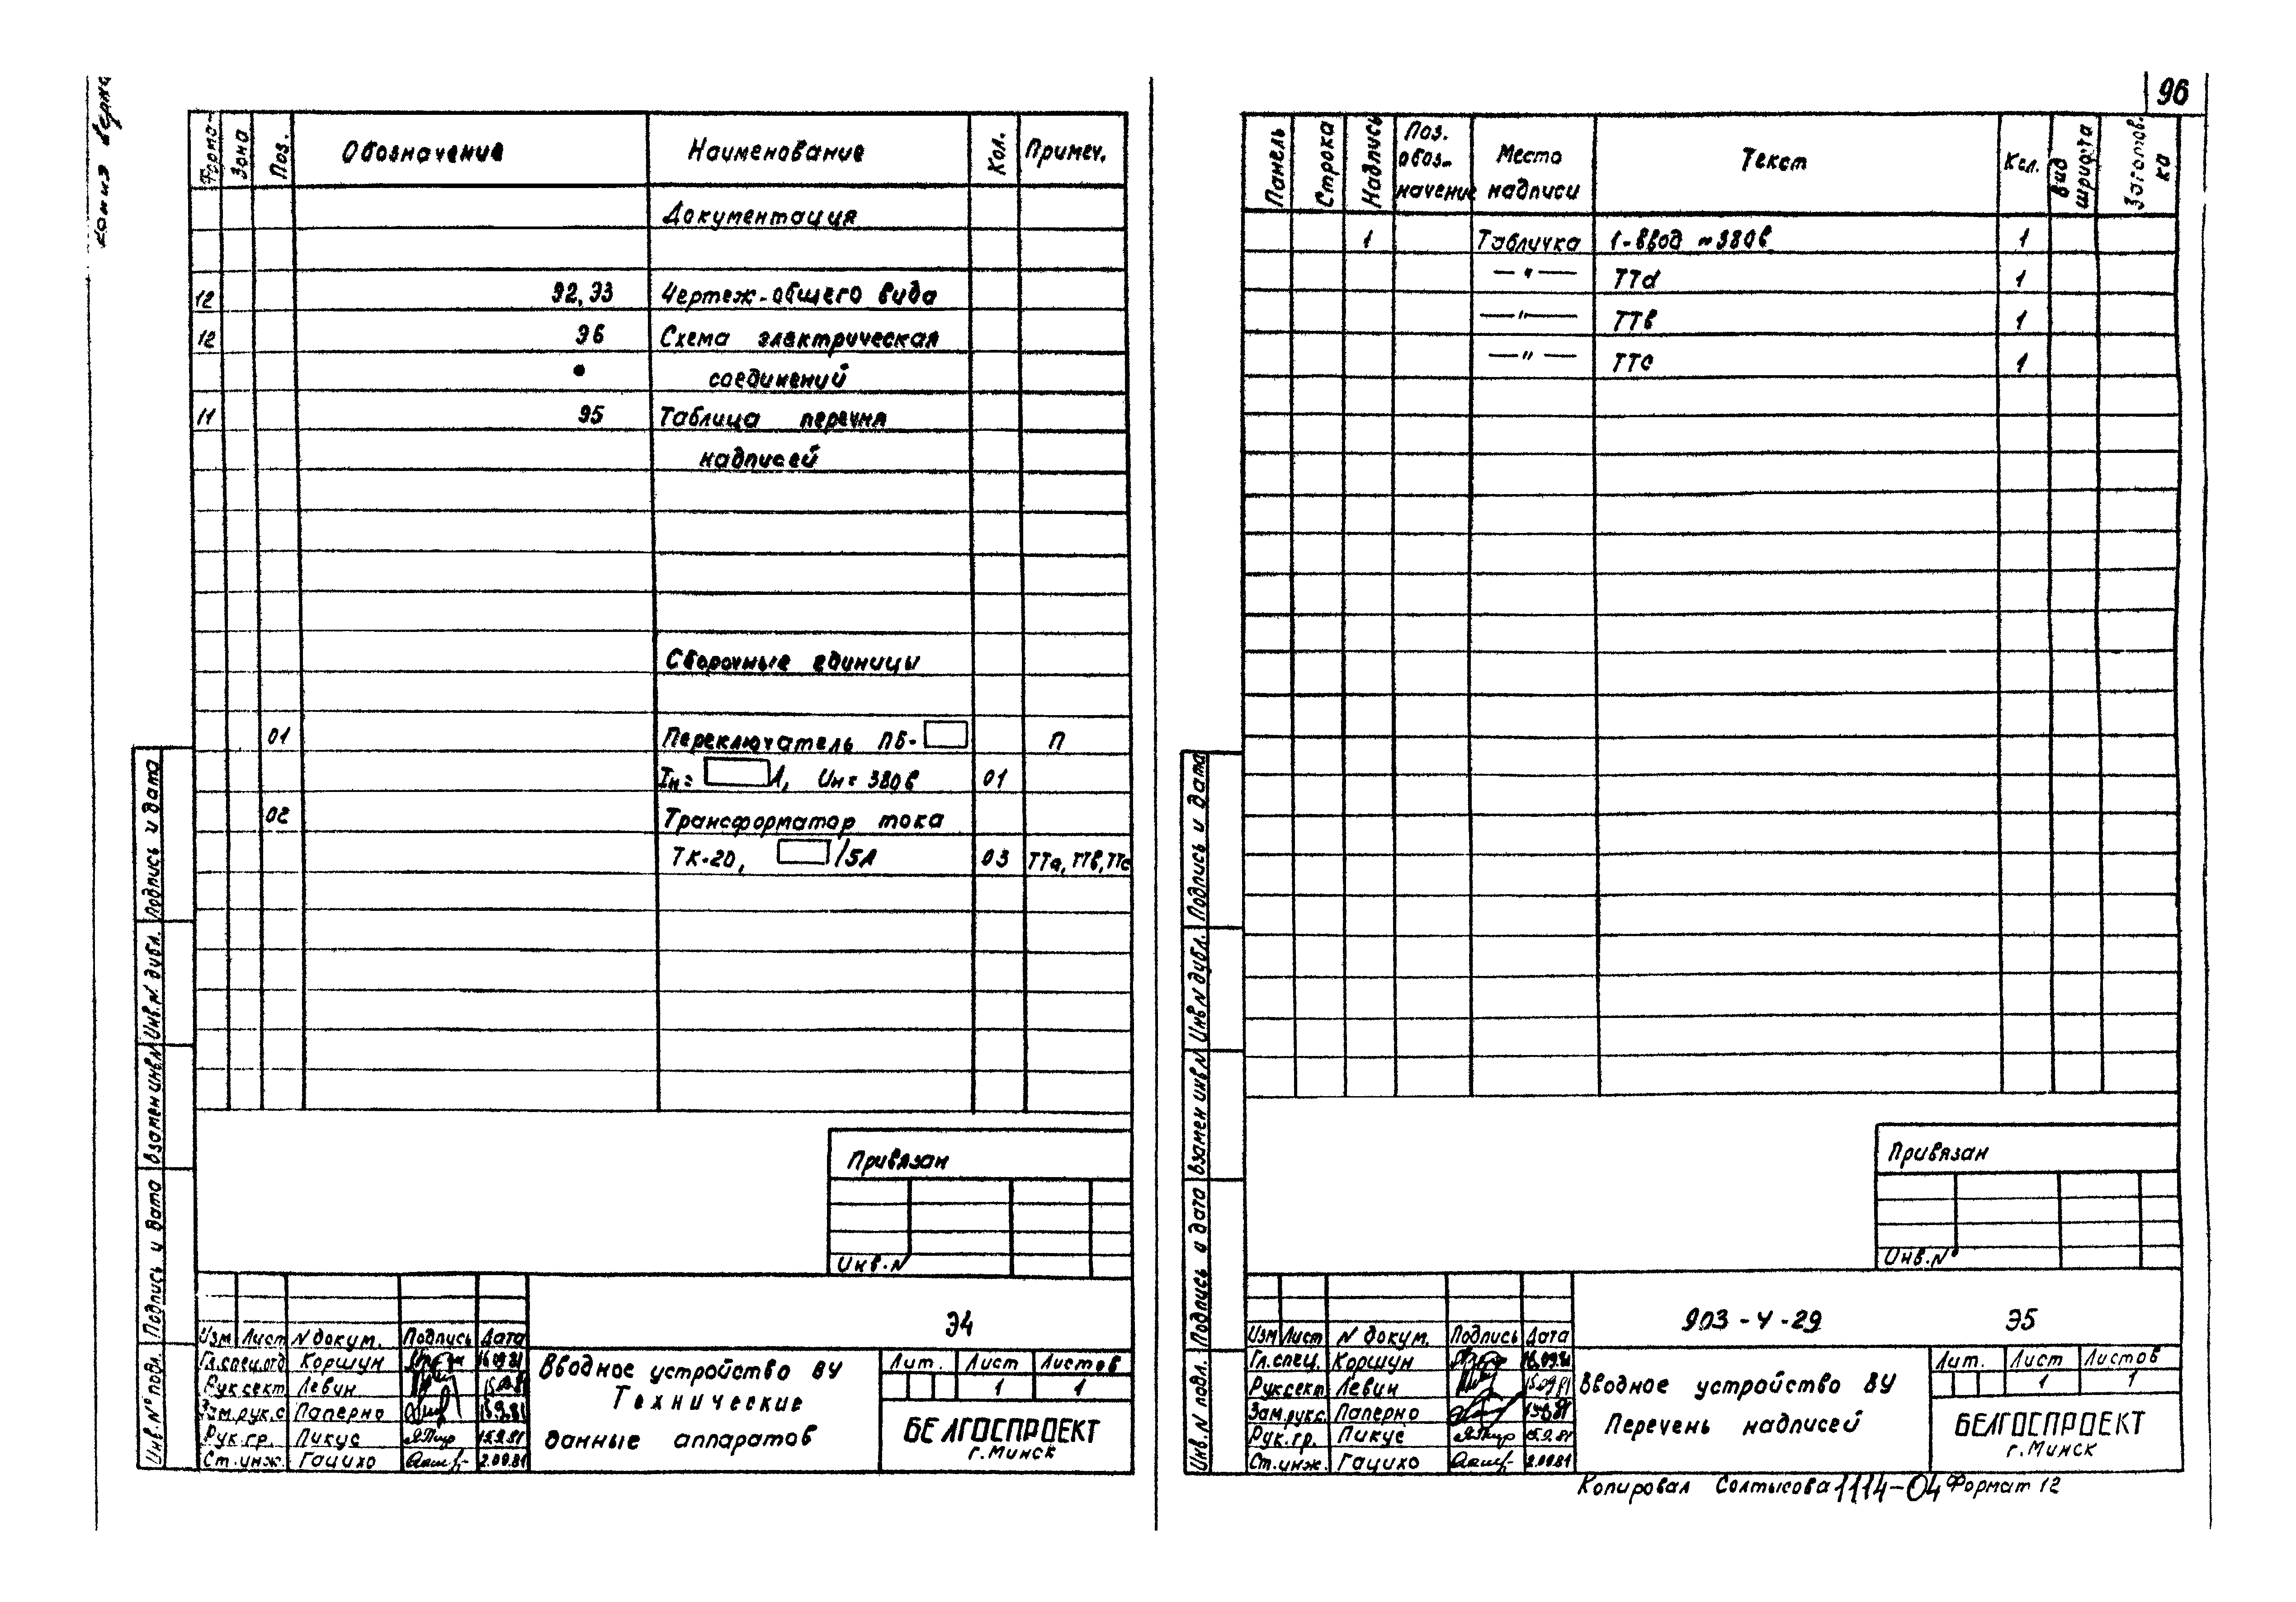 копия верна
96
Форма- Зона Поз. Обозначение Наименование Кол. Примеч.
Документация
12 Э2, Э3 Чертеж общего вида
12 Э6 Схема электрическая
соединений
11 Э5 Таблица перечня
надписей
Сборочные единицы
01 Переключатель ПБ- П
Iн= А, Uн= 380в 01
02 Трансформатор тока
ТК-20, /5А 03 ТТа, ТТв, ТТс
Подпись и дата
Инв.N. дубл.
Взамен инв.N
Подпись и дата
Инв.N° подл.
Привязан
Инв.N
Э4
Изм Лист N докум. Подпись Дата
Гл.спец.отд Коршун 16.09.81
Рук.сект. Левин
Зам.рук.с Паперно 15.9.81
Рук.гр. Пикус 15.9.81
Ст.инж. Гацихо 2.09.81
Вводное устройство ВУ
Технические
данные аппаратов
Лит. Лист Листов
1 1
БЕЛГОСПРОЕКТ
г.Минск
Панель Строка Надпись Поз. обоз-начение Место надписи Текст Кол. Вид шрифта Заготов.ка
1 Табличка 1-Ввод ~380в 1
—"— ТТа 1
—"— ТТв 1
—"— ТТс 1
Подпись и дата
Инв.N дубл.
Взамен инв.N
Подпись и дата
Инв.N подл.
Привязан
Инв.N°
903-4-29 Э5
Изм Лист N докум. Подпись Дата
Гл.спец. Коршун 16.09.81
Рук.сект Левин 15.09.81
Зам.рук.с. Паперно 15.9.81
Рук.гр. Пикус 15.9.81
Ст.инж. Гацихо 2.09.81
Вводное устройство ВУ
Перечень надписей
Лит. Лист Листов
1 1
БЕЛГОСПРОЕКТ
г.Минск
Копировал Солтысова 1114-04 Формат 12